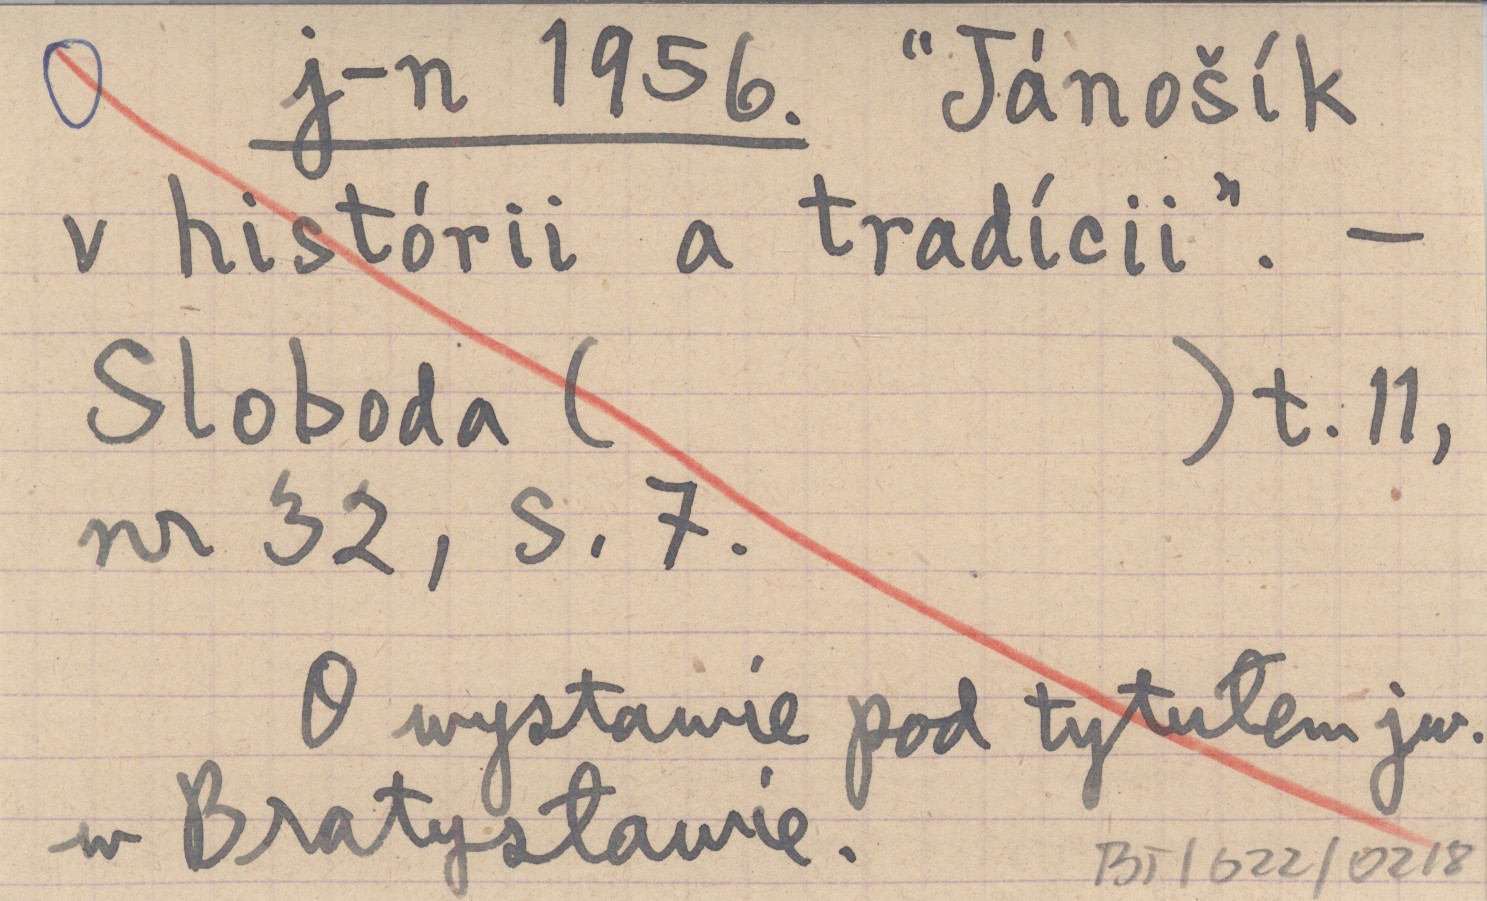 j-n 1956. “Jánošík
v histórii a tradícii”. —
Sloboda ( ) t. 11,
nr 32, s. 7.
O wystawie pod tytułem jw.
w Bratysławie.
BT/622/0218